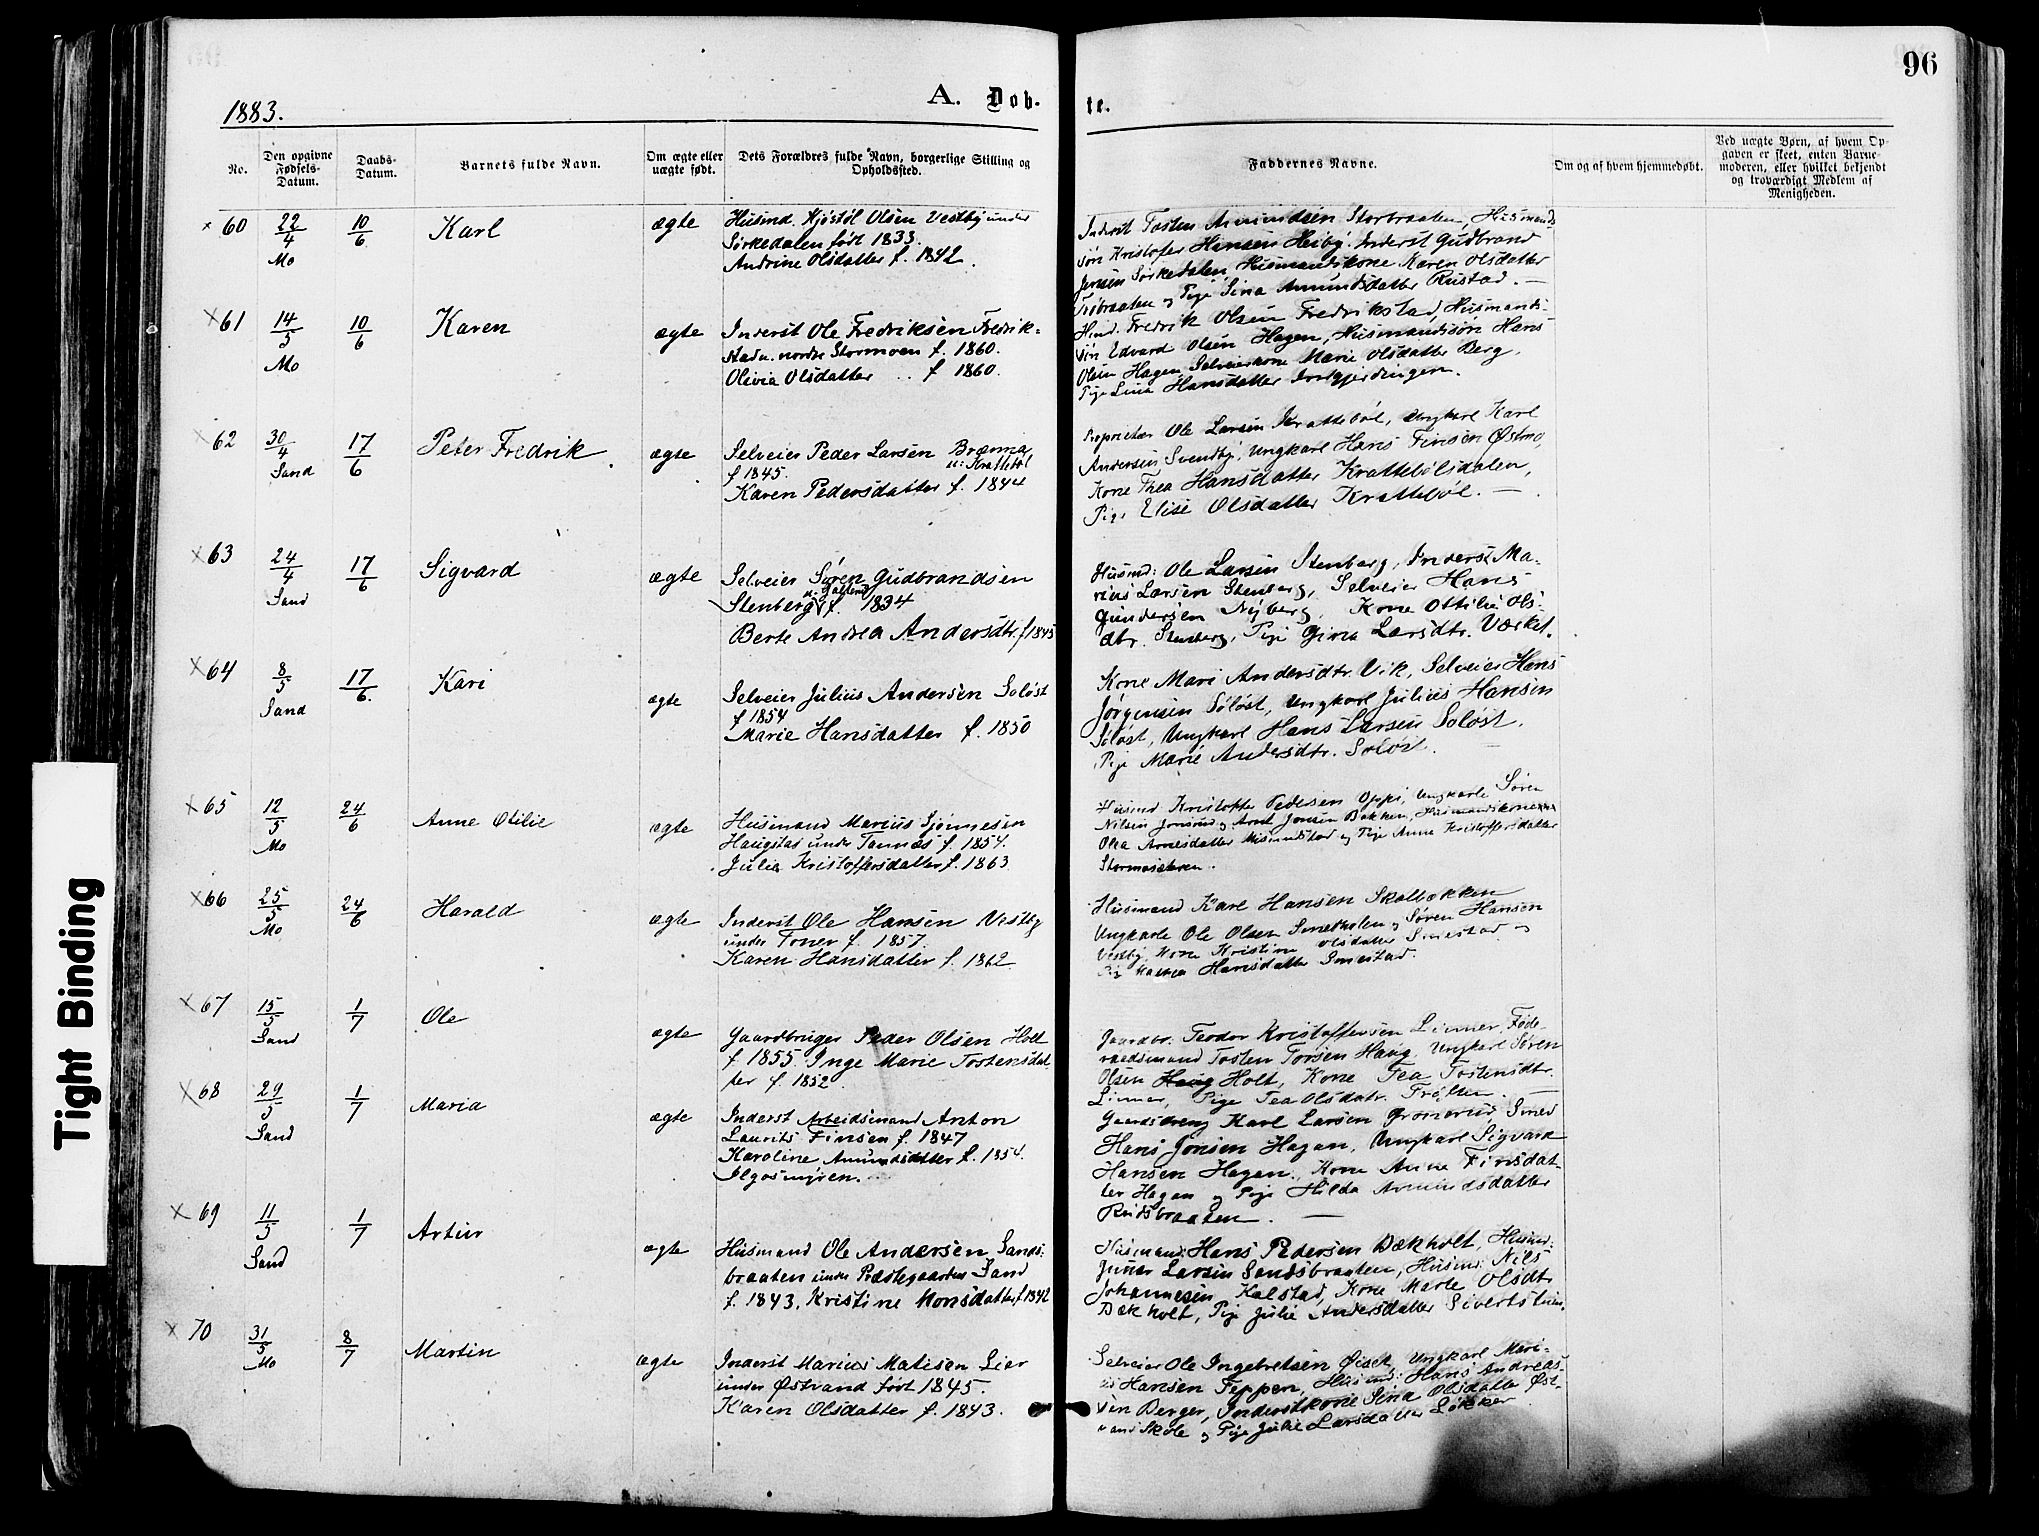 96
1883.
A. Døb-
te.
No.
Den opgivne Fødsels-Datum.
Daabs-Datum.
Barnets fulde Navn.
Om ægte eller uægte født.
Dets Forældres fulde Navn, borgerlige Stilling og Opholdssted.
Faddernes Navne.
Om og af hvem hjemmedøbt.
Ved uægte Børn, af hvem Op-
gaven er skeet, enten Barne-
moderen, eller hvilket bekjendt
og troværdigt Medlem af
Menigheden.
× 60 22/4 Mo 10/6 Karl ægte
Husmd. Kjøstøl Olsen Vestby under
Sørkedalen født 1833.
Andrine Olsdatter f. 1842.
Inderst Tosten Amundsen Storbraaten, Husmands
søn Kristofer Hansen Heiby. Inderst Gudbrand
Jensen Sørkedalen, Husmandskone Karen Olsdatter
og Pige Sina Amundsdatter Rustad. —
× 61 14/5 Mo 10/6 Karen ægte
Inderst Ole Fredriksen Fredrik=
stad u. nordre Stormoen f. 1860.
Olivia Olsdatter .. f 1860.
Husmd. Fredrik Olsen Fredrikstad, Husmands-
søn Edvard Olsen Hagen, Husmandssøn Hans
Olsen Hagen, Selveierkone Marie Olsdatter Berg,
Pige Lina Hansdatter
× 62 30/4 Sand 17/6 Peter Fredrik ægte
Selveier Peder Larsen Brænna
u: Krattebøl
f 1845.
Karen Pedersdatter f. 1844
Proprietær Ole Larsen Krattebøl, Ungkarl Karl
Andersen Svendby, Ungkarl Hans Finsen Østmo,
Kone Thea Hansdatter Krattebølsdalen,
Pige Elise Olsdatter Krattebøl. —
× 63 24/4 Sand 17/6 Sigvard ægte
Selveier Søren Gudbrandsen
Stenberg f. 1834
Berte Andrea Andersdtr. f 1845
Husmd: Ole Larsen Stenberg, Inderst Ma-
rius Larsen Stenberg, Selveier Hans
Gundersen Nyberg, Kone Ottilie Ols-
dtr. Stenberg, Pige Gina Larsdtr. Værket.
× 64 8/5 Sand 17/6. Kari ægte
Selveier Julius Andersen Soløst
f 1854
Marie Hansdatter f. 1850
Kone Mari Andersdtr. Vik, Selveier Hans
Jørgensen Soløst, Ungkarl Julius Hansen
Soløst, Ungkarl Hans Larsen Soløst,
Pige Marie Andersdtr. Soløst. —
× 65 12/5 Mo 24/6 Anne Otilie ægte
Husmand Marius Sjønnesen
Haugstad under Tannæs f. 1854.
Julia Kristoffersdatter f. 1863
Husmd Kristoffer Pedersen Oppi, Ungkarle Søren
Nilsen Jonsrud og Arnt Jonsen Bakken, Husmandskone
Olea Arnesdatter og Pige Anne Kristoffersdatter
Stormosæteren.
× 66 25/5 Mo 24/6 Harald ægte
Inderst Ole Hansen Vestby
under Foner f. 1857.
Karen Hansdatter f. 1862.
Husmand Karl Hansen Skalbakken
Ungkarle Ole Olsen Smetholen og Søren Hansen
Vestby, Kone Kristine Olsdatter Smestad og
Pige Hansdatter Smestad.
× 67 15/5 Sand 1/7 Ole ægte
Gaardbruger Peder Olsen Holt
f 1855. Inge Marie Tostensdat-
ter f. 1852.
Gaardbr: Teodor Kristoffersen Linner, Føde-
raadsmand Tosten Torsen Haug, Ungkarl Søren
Olsen Haug Holt, Kone Tea Tostensdtr.
Linner, Pige Tea Olsdatr. —
× 68 29/5 Sand 1/7 Maria ægte
Inderst Arbeidsmand Anton
Laurits Finsen f. 1847
Karoline Amundsdatter f. 1854.
Ilgosmyren.
Gaardsdreng Karl Larsen Gromerud, Smed
Hans Jonsen Hagan, Ungkarl Sigvard
Hansen Hagan, Kone Anne Finsdat-
ter Hagan og Pige Hilda Amundsdatter
Rudsbraaten. —
× 69 11/5 Sand 1/7 Artur ægte
Husmand Ole Andersen Sands-
braaten under Præstegaarden Sand
f. 1843, Kristine Monsdatter f 1842
Husmand: Hans Pedersen Bækholt, Husmd:
Larsen Sandsbraaten, Husmd: Nils
Johannesen Kalstad, Kone Marte Olsdtr.
Bækholt, Pige Julie Andersdatter
× 70 31/5 Mo 8/7 Martin ægte
Inderst Marius Matisen Lier
under Østvand født 1845.
Karen Olsdatter f. 1843.
Selveier Ole Ingebretsen Ungkarl Mari-
us Hansen Teppen, Husmd: Hans Andreas-
sen Berger, Inderstkone Sina Olsdatter Øst-
vand Skole og Pige Julie Larsdatter Løkker
Tight Binding